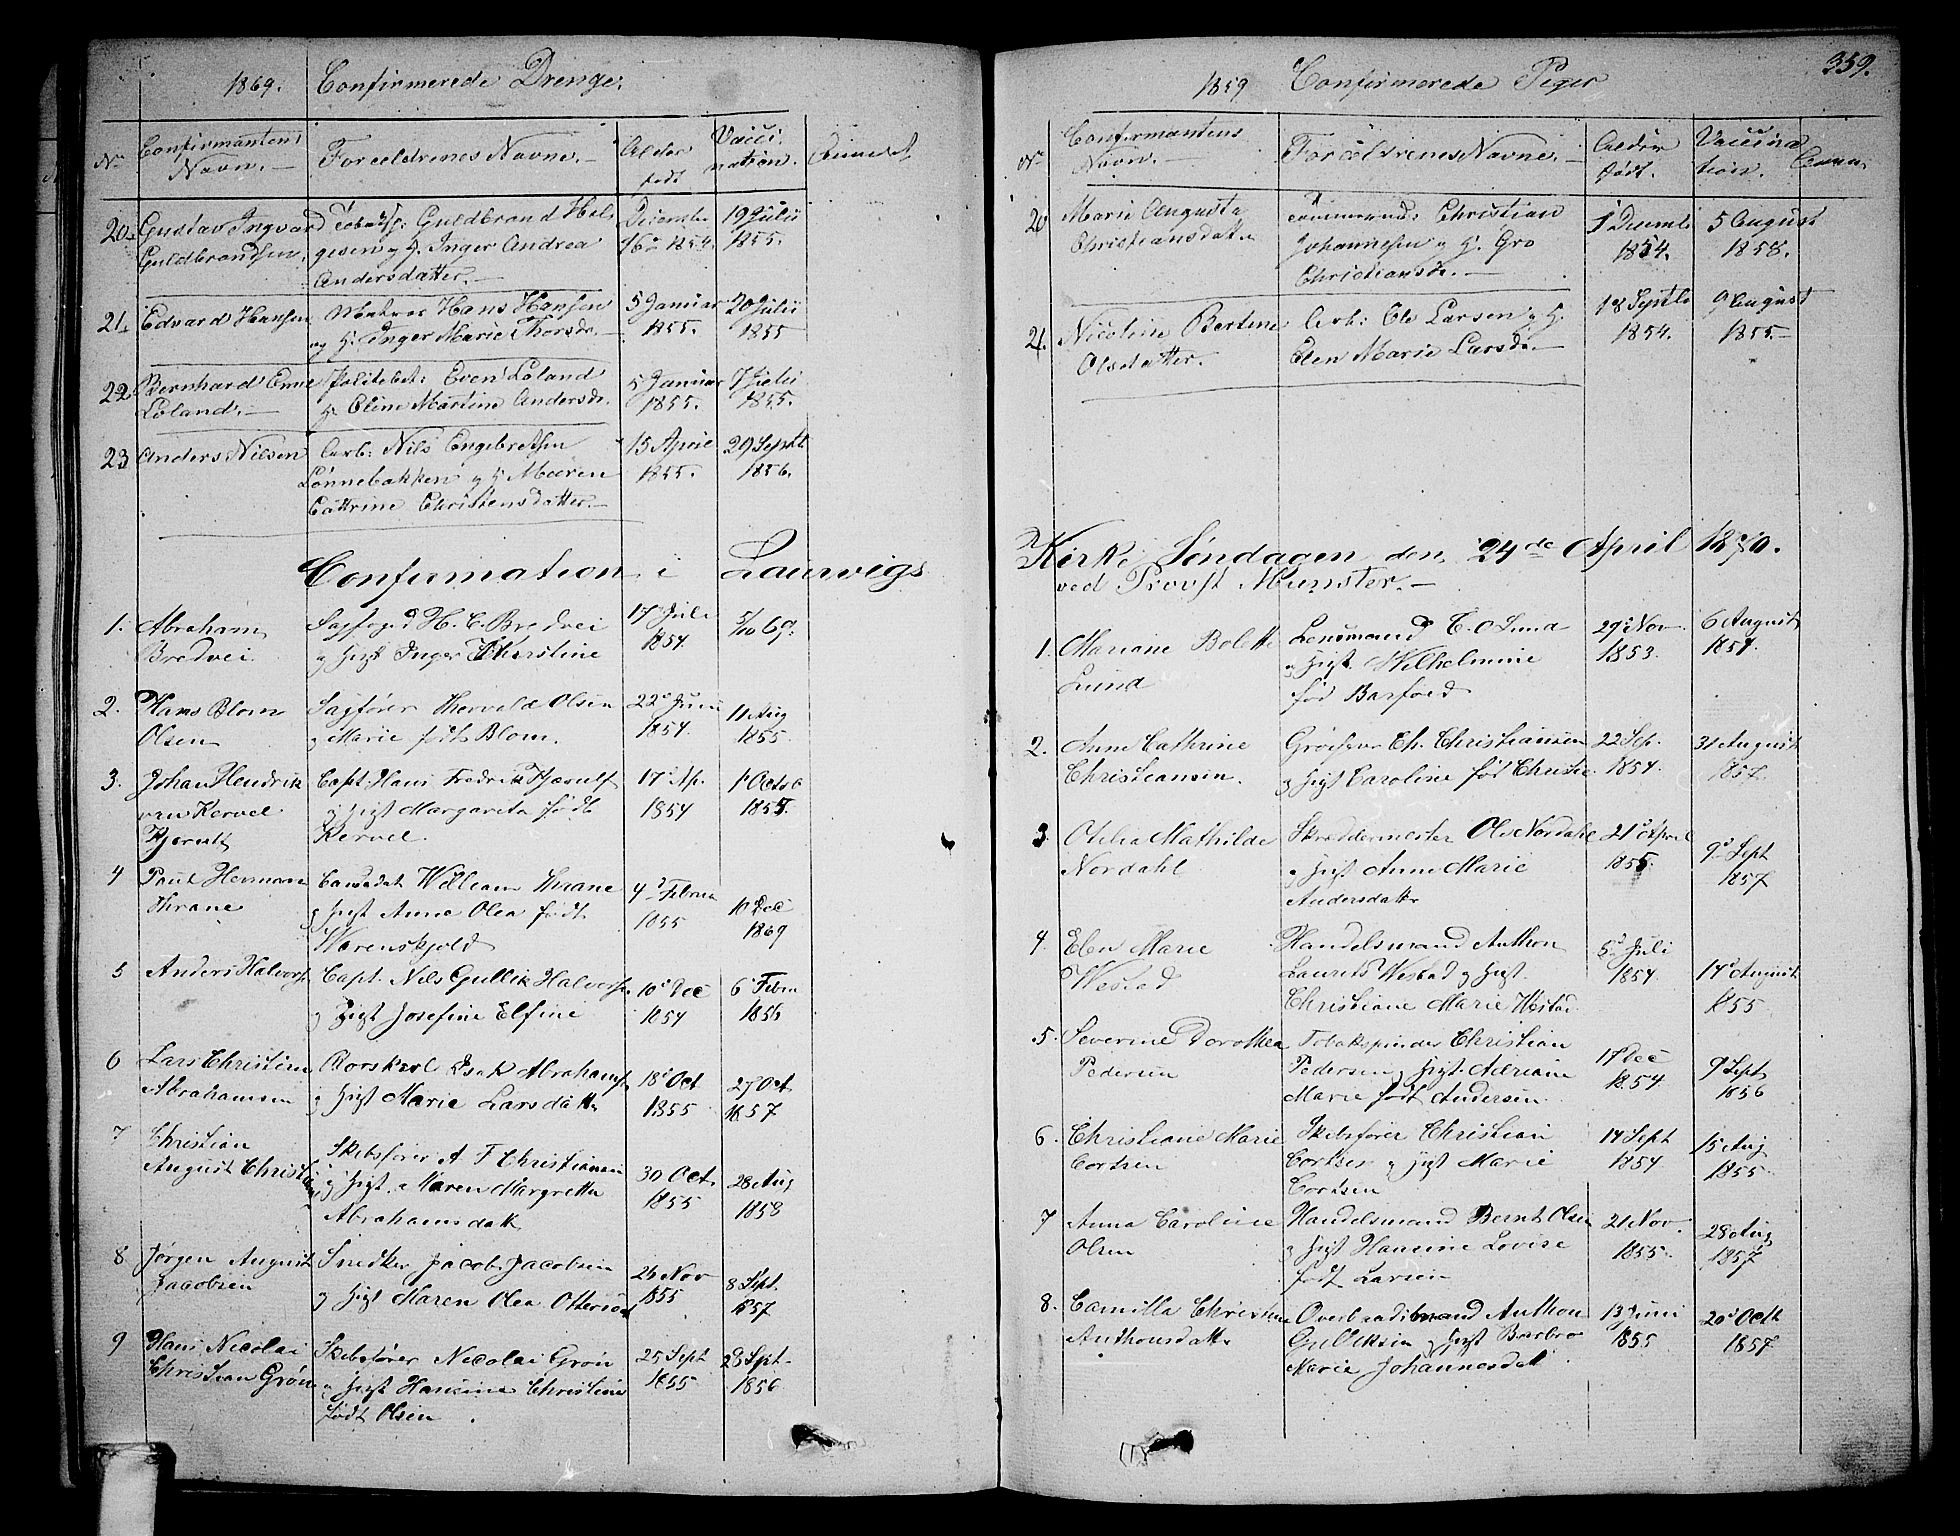 1869. Confirmerede Drenge.
No Confirmantens Navn. Forældrenes Navne. Alder født Vacci-nation. Anmærk
20. Gustav Ingvard Guldbrandsen,
Guldbrand Hel-
gesen og H. Inger Andrea
Andersdatter.
Decembr
16de 1854.
19 Julii
1855.
21. Edvard Hansen
Matros Hans Hansen
og H. Inger Marie Thorsdr.
5 Januar
1855.
20 Julii
1855
22 Bernhard
Løland.
Politibet: Even Løland
H. Eline Martine Andersdr.
5 Januar
1855.
7 Julii
1855.
23 Anders Nilsen
Arb: Nils Engebretsen
Lønnebakken og H Maren
Cattrine Christensdatter.
15 April
1855.
29 Septb
1856.
Confirmation i Laurvigs
1. Abraham
Bredvei
Sagfogd H. C. Bredvei
og Hust Inger Kherstine
17 Juli
1854
5/10 69.
2. Hans Blom
Olsen
Sagfører Thorvald Olsen
og Marie født Blom.
22d Juni
1854.
11 Aug
1855.
3. Johan Hendrik
van Kervel
Kjerulf
Capt. Hans Fredrik Kjerulf
og Hust Margareta født
Kervel.
17d Ap.
1854
1 Octob
1855.
4 Paul Herman
Thrane
Candidat William Thrane
og Hust Anne Olea født
Warenskjold
4d Februar
1855
10 Dec
1869
5 Anders Halvors.
Capt. Nils Gullik Halvorsen
og Hust Josefine Elfine
10d Dec
1854
6 Febru
1856
6 Lars Christian
Abrahamsen
Rorskarl Isak Abrahams.
og Hust Marie Larsdatt.
18d Oct
1855
27 Oct
1857
7 Christian
August Christiansen
Skibsfører A F Christiansen
og Hust. Maren Margretta
Abrahamsdatt
30 Oct.
1855
28 Aug
1858
8 Jørgen August
Jacobsen
Snedker Jacob Jacobsen
og Hust Maren Olea Ottersen
26 Nov
1855
8 Sept.
1857
9 Hans Nicolai
Christian Grøn
Skibsfører Nicolai Grøn
og Hust Hansine Christine
født Olsen
25 Sept
1855
28 Sept.
1856
359.
1859 Confirmerede Piger
No Confirmantens Navn. Forældrenes Navne. Alder født. Vaccina tion. Anm
20 Marie Augusta
Christiansdatter
Tømmermd: Christian
Johannesen og H. Gro
Christiansdr.
1 Desemb
1854.
5 August
1858.
21. Nicoline Bertine
Olsdatter.
Arb: Ole Larsen og H.
Elen Marie Larsdr.
18 Septb
1854.
9 August
1855.
Kirke Søndagen den 24de April 1870.
ved Provst Munster.
1. Mariane Bolette
Lund
Lensmand C. O Lund
og Hust Wilhelmine
fød Barfoed
29d Nov.
1853.
6 August
1857.
2. Anne Cathrine
Christiansen.
Ch. Christiansen
og Hust Caroline fød Christie
22 Sep.
1854.
31 August
1857.
3. Otilia Mathilde
Nordahl
Skreddermester Ole Nordahl
og Hust Anne Marie
Andersdatt
21d April
1855.
9d Sept
1857
4. Elen Marie
Westad
Handelsmand Anthon
Laurits Westad og Hust.
Christiane Marie Westad
5d Juli
1854
14d August
1855
5. Severine Dorothea
Pedersen
Tobakspinder Christian
Pedersen og Hust. Adriane
Marie født Andersen.
17 Dec
1854
9 Sept
1856
6. Christiane Marie
Cortsen
Skibsfører Christian
Cortsen og Hust Marie
Cortsen
14 Sept
1854
15 Aug
1855.
7 Anna Caroline
Olsen
Handelsmand Bernt Olsen
og Hust Hansine Lovise
født Larsen
21 Nov
1855.
28 Aug
1857
8. Camilla Christine
Anthonsdatt.
Overbradsmand Anthon
Gulliksen og Hust Barbro
Marie Johannesdat
13 Juni
1855
20d Octb
1857